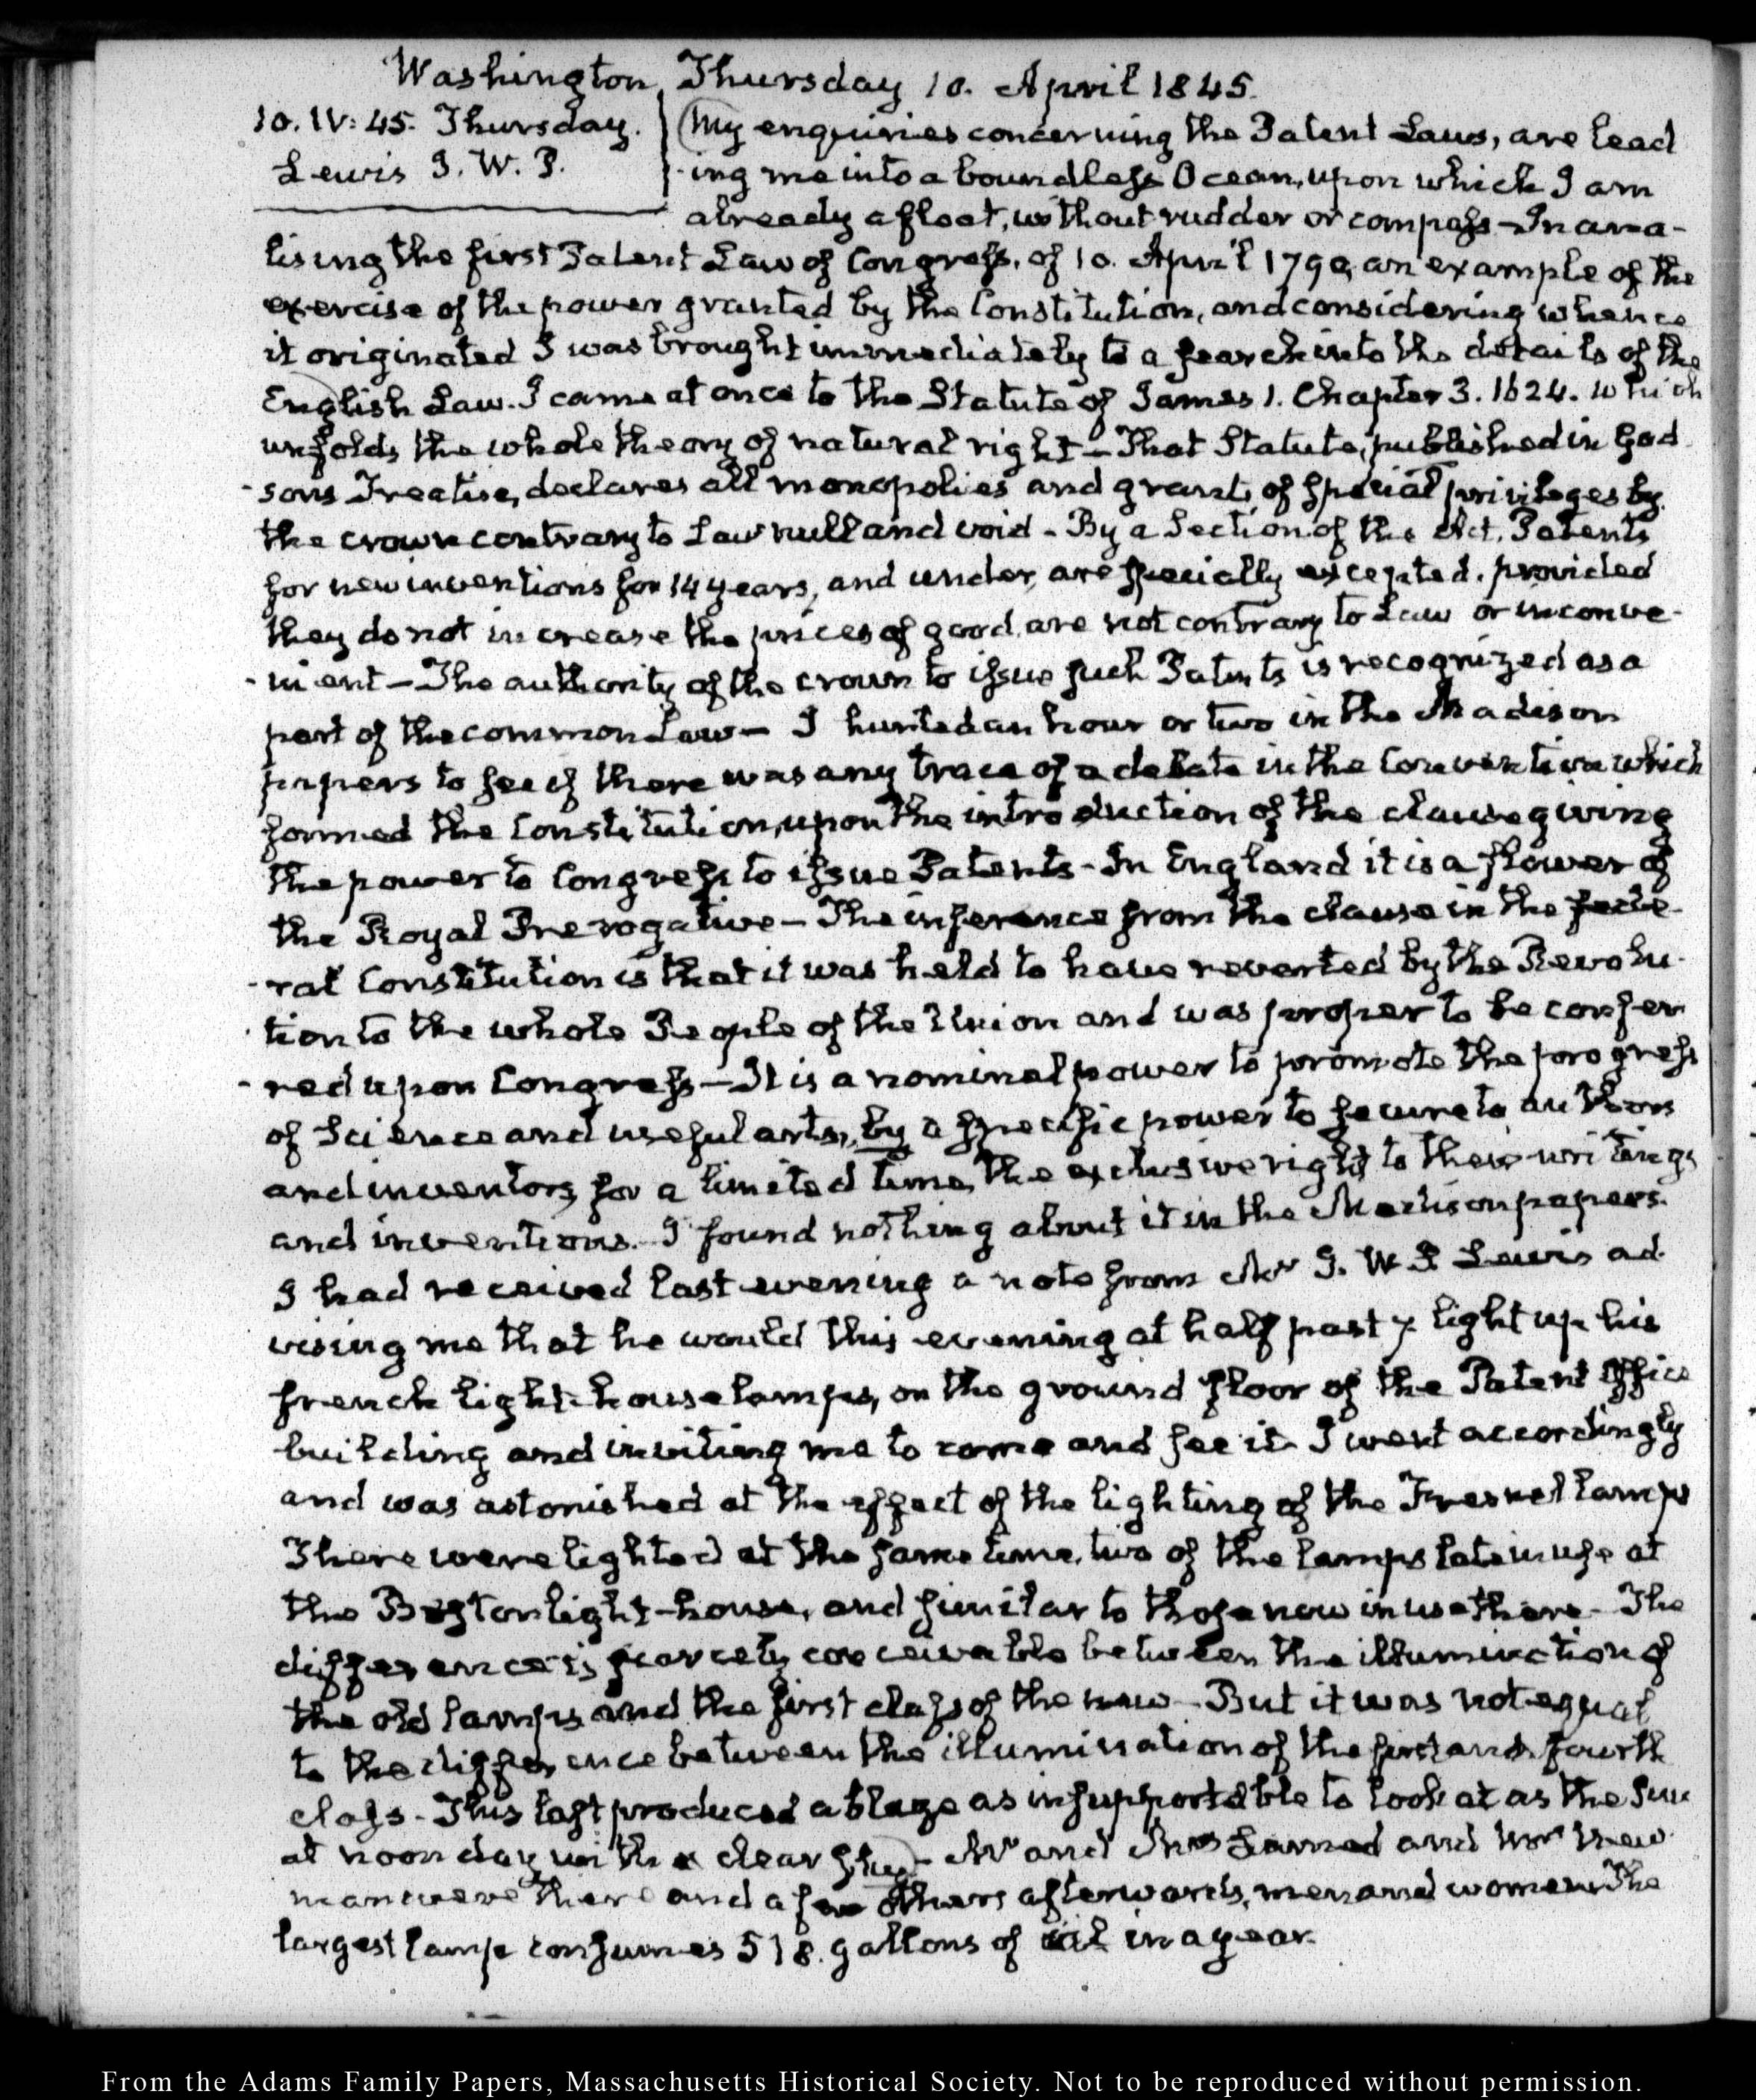 Washington, Thursday 10. April 1845.
10. IV: 45. Thursday.
Lewis I. W. P.
My enquiries concerning the Patent Laws, are lead
-ing me into a boundless Ocean, upon which I am
already afloat, without rudder or compass – In ana-
lising the first Patent Law of Congress, of 10. April 1790, an example of the
exercise of the power granted by the Constitution, and considering whence
it originated I was brought immediately to a search into the details of the
English Law. I came at once to the Statute of James 1. Chapter 3. 1624. which
unfolds the whole theory of natural right – That Statute, published in God
-sons Treatise, declares all monopolies and grants of special privileges by
the crown contrary to Law null and void - By a Section of the Act, Patents
for new inventions for 14 years, and under, are specially excepted, provided
they do not increase the prices of good, are not contrary to Law or inconve-
-nient – The authority of the crown to issue such Patents is recognized as a
part of the common Law – I hunted an hour or two in the Madison
papers to see if there was any trace of a debate in the Convention which
formed the Constitution, upon the introduction of the clause giving
the power to Congress to issue Patents - In England it is a flower of
the Royal Prerogative – The inference from the clause in the fede-
-ral Constitution is that it was held to have reverted by the Revolu-
-tion to the whole People of the Union and was proper to be confer
-red upon Congress – It is a nominal power to promote the progress
of Science and useful arts, by a specific power to secure to authors
and inventors for a limited time, the exclusive right to their writings
and inventions. I found nothing about it in the Madison papers.
I had received last evening a note from Mr I. W. P. Lewis ad-
vising me that he would this evening at half past 7 light up his
french light-house lamps, on the ground floor of the Patent Office
building and inviting me to come and see it. I went accordingly
and was astonished at the effect of the lighting of the Fresnel lamps
There were lighted at the same time, two of the lamps late in use at
the Boston light-house, and similar to those now in use there – The
difference is scarcely conceivable between the illumination of
the old lamps and the first class of the new – But it was not equal
to the difference between the illumination of the first and fourth
class - This last produced a blaze as insupportable to look at as the Sun
at noon day with a clear sky – Mr and Mrs and Mr New
man were there and a few others afterwards, men and women. The
largest lamp consumes 518. gallons of oil in a year.
From the Adams Family Papers, Massachusetts Historical Society. Not to be reproduced without permission.